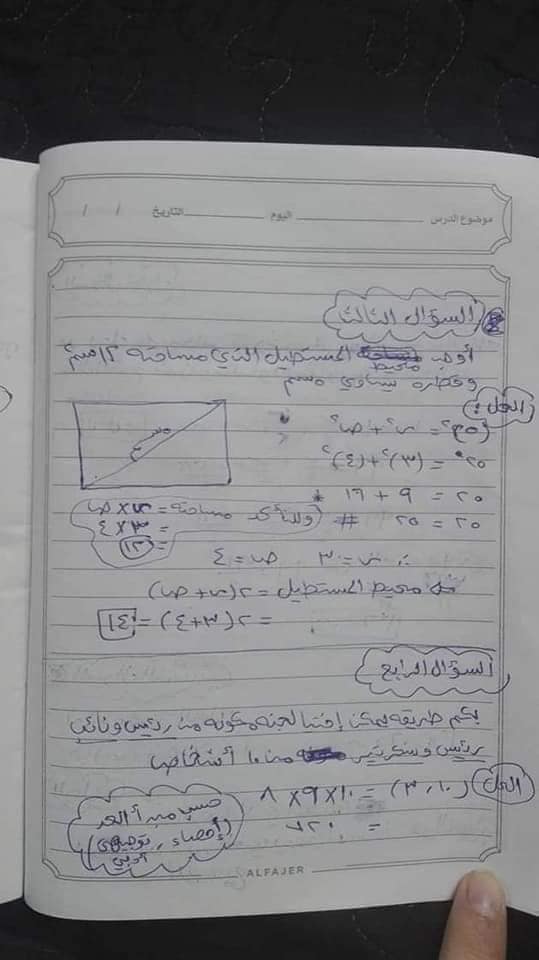 موضوع الدرس اليوم التاريخ / /
السؤال الثالث
أوجد محيط المستطيل الذي مساحته ١٢سم
وقطره يساوي ٥سم
الحل:
(٥)٢ = س٢ + ص٢
٢٥ = (٣)٢ + (٤)٢
٢٥ = ٩ + ١٦
٢٥ = ٢٥ #
وللتأكد مساحته = س × ص
= ٣ × ٤
= ١٢
٥سم
∴ س = ٣ ص = ٤
محيط المستطيل = ٢(س + ص)
= ٢(٣ + ٤) = ١٤
السؤال الرابع
بكم طريقه يمكن إختيا لجنه مكونه من رئيس ونائب
رئيس وسكرتير من ١٠ أشخاص
الحل (١٠, ٣) = ١٠ × ٩ × ٨
= ٧٢٠
حسب مبدأ العد
(إحصاء, توجيهي
أدبي)
ALFAJER